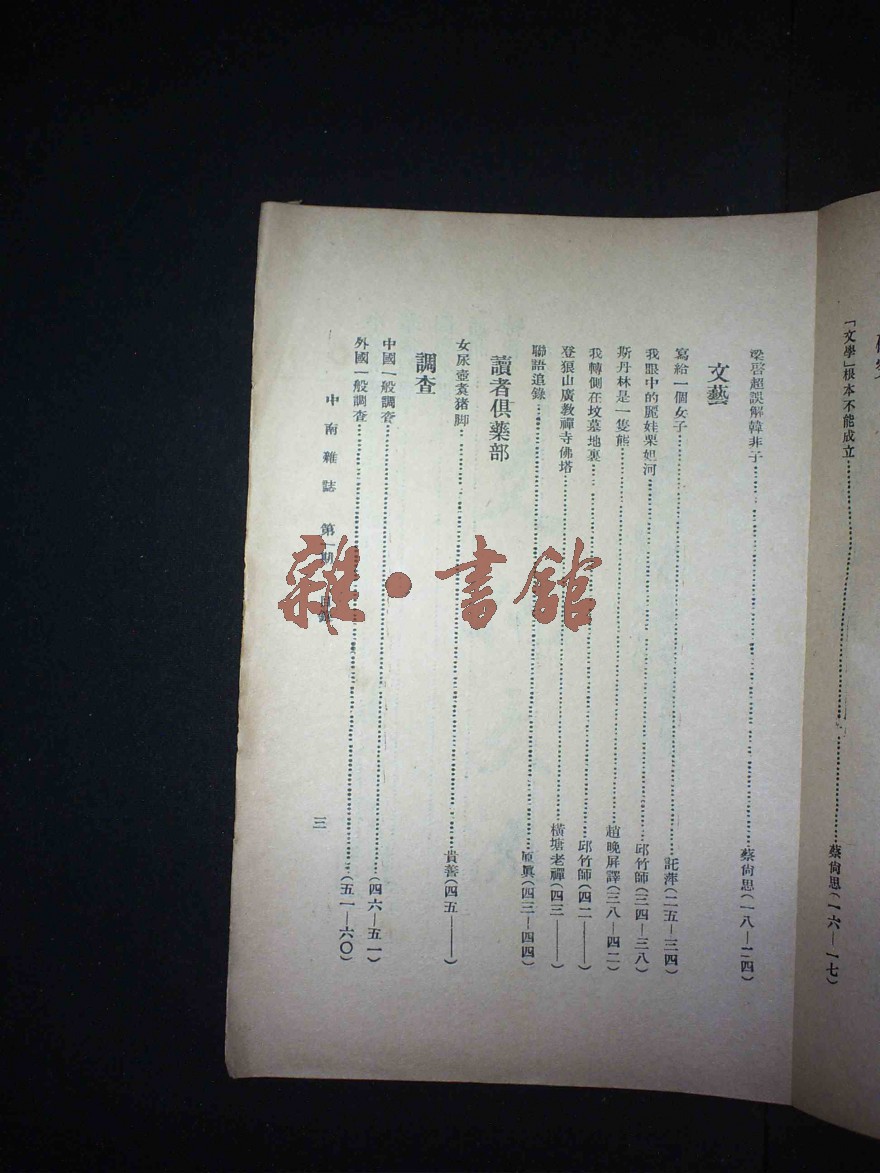 「文學」根本不能成立……蔡尙思(一六—一七)
梁啓超誤解韓非子……蔡尙思(一八—二四)
文藝
寫給一個女子……託萍(二五—三四)
我眼中的麗娃栗妲河……邱竹師(三四—三八)
斯丹林是一隻熊……趙晚屏譯(三八—四二)
我轉側在坟墓地裏……邱竹師(四二——)
登狼山廣教禪寺佛塔……橫塘老禪(四三——)
聯語追錄……(四三—四四)
讀者俱藥部
女尿壺袁猪脚……貴善(四五——)
調查
中國一般調查……(四六—五一)
外國一般調查……(五一—六〇)
中南雜誌 第一期 目錄
三
雜·書館